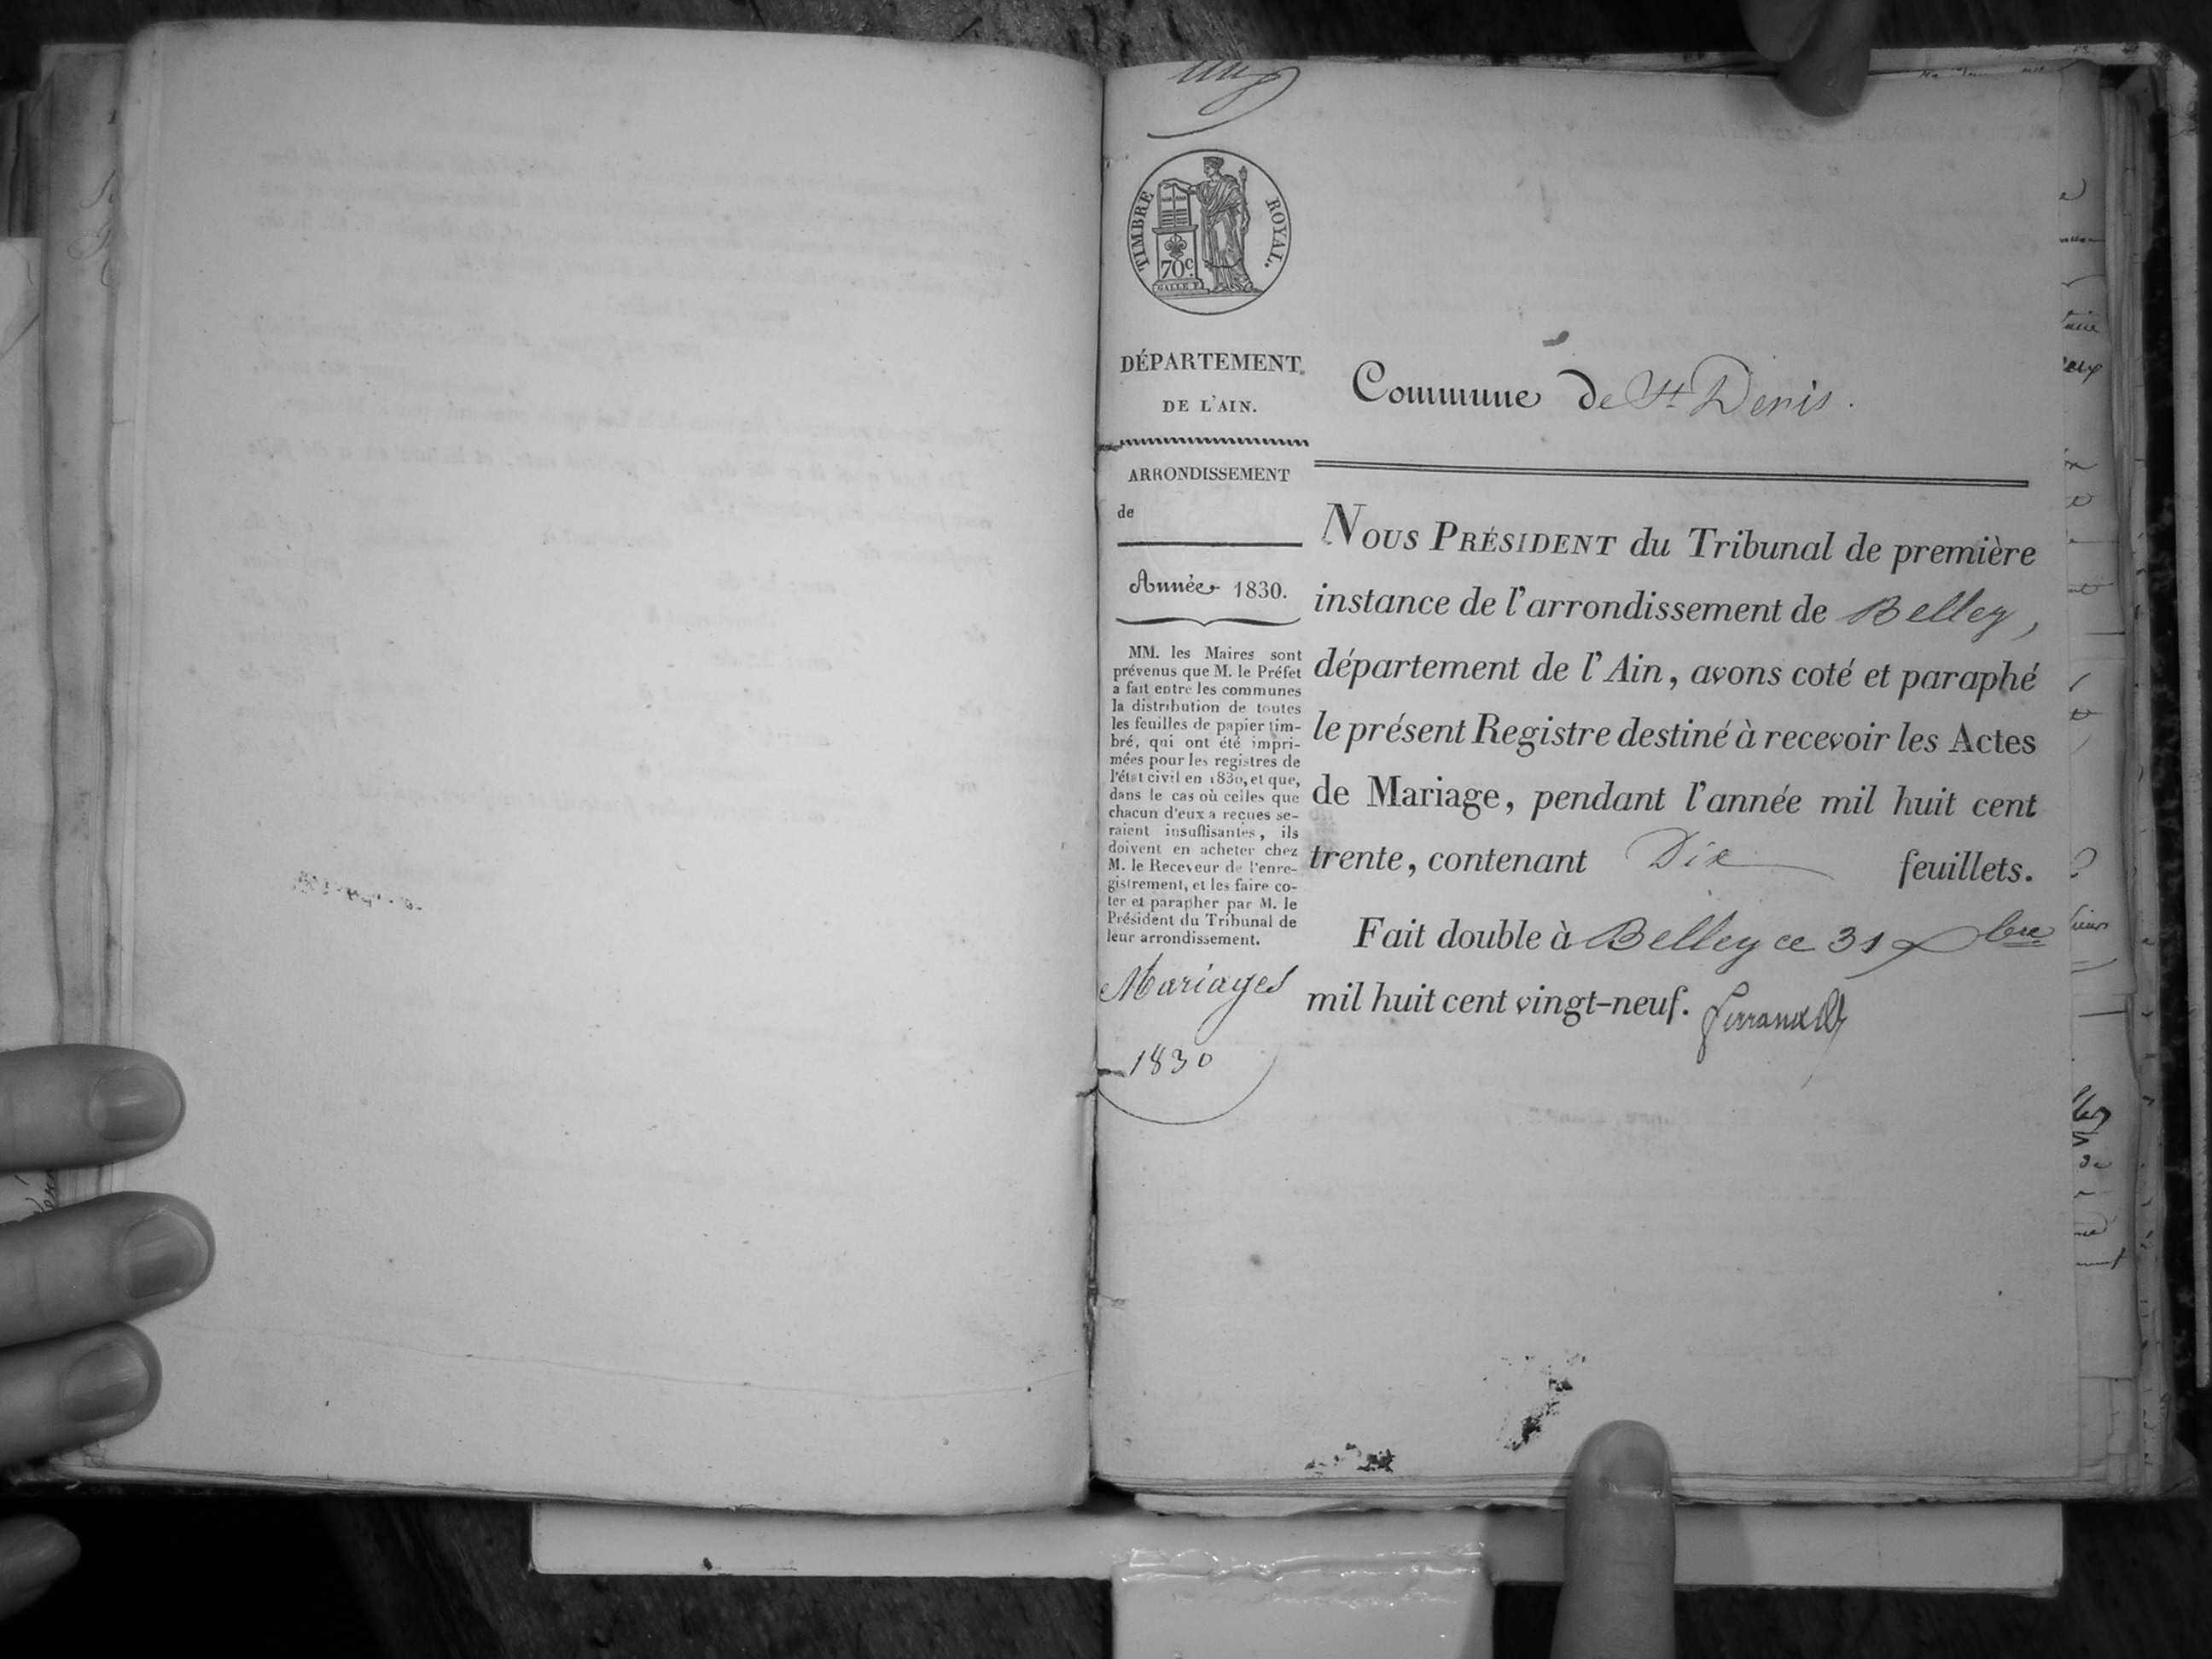 TIMBRE ROYAL.
70c.
GALLE F.
DÉPARTEMENT
DE L'AIN.
ARRONDISSEMENT
de
Année 1830.
MM. les Maires sont
prévenus que M. le Préfet
a fait entre les communes
la distribution de toutes
les feuilles de papier tim-
bré, qui ont été impri-
mées pour les registres de
l'état civil en 1830, et que,
dans le cas où celles que
chacun d'eux a reçues se-
raient insuffisantes, ils
doivent en acheter chez
M. le Receveur de l'enre-
gistrement, et les faire co-
ter et parapher par M. le
Président du Tribunal de
leur arrondissement.
Mariages
1830
Commune de St Denis.
NOUS PRÉSIDENT du Tribunal de première
instance de l'arrondissement de Belley,
département de l'Ain, avons coté et paraphé
le présent Registre destiné à recevoir les Actes
de Mariage, pendant l'année mil huit cent
trente, contenant Dix feuillets.
Fait double à Belley ce 31 Xbre
mil huit cent vingt-neuf.